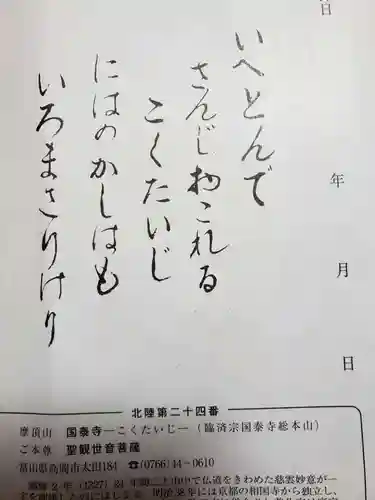 日
年 月 日
いへとんで
さんじ これる
こくたいじ
にはのかしはも
いろまさりけり
北陸第二十四番
摩頂山 国泰寺―こくたいじ―(臨済宗国泰寺総本山)
ご本尊 聖観世音菩薩
富山県高岡市太田184 ☎(0766)44-0610
2年(1227) 二上山中で仏道をきわめた慈雲妙意が一